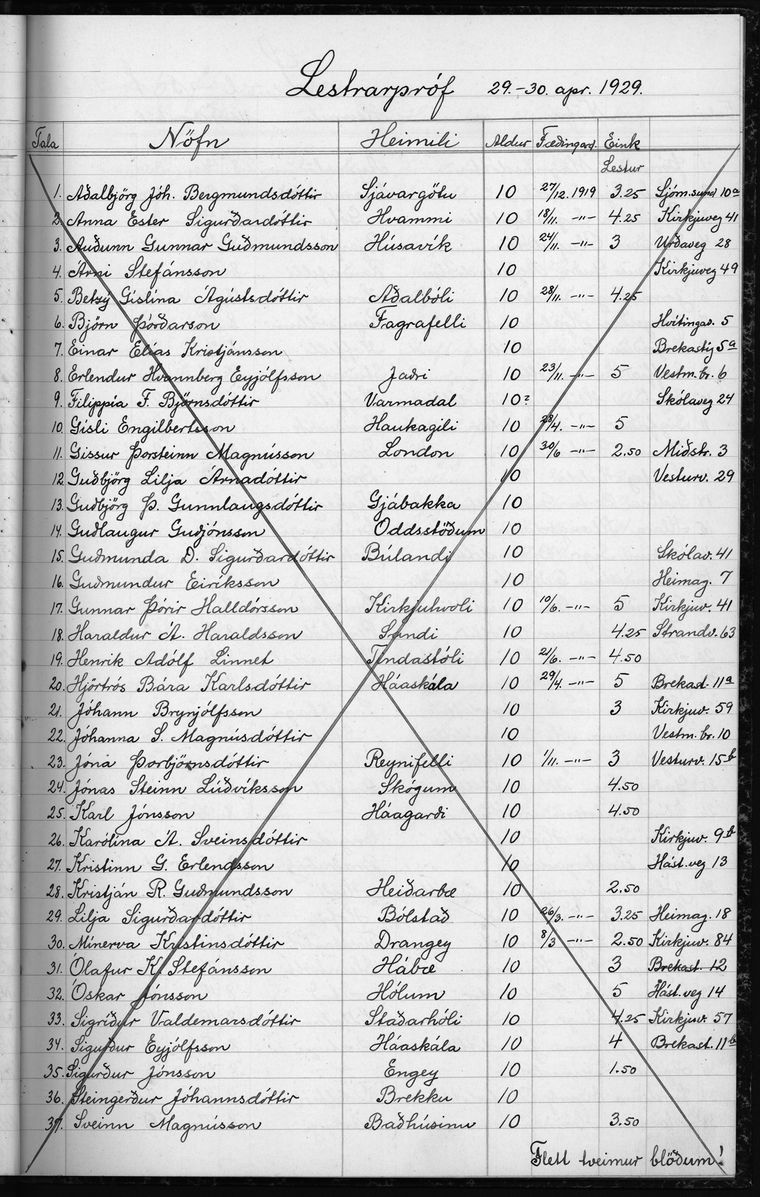 Lestrarpróf 29.-30. apr. 1929.
Tala Nöfn Heimili Aldur Fæðingard. Eink
Lestur
1. Aðalbjörg Jóh. Bergmundsdóttir Sjávargötu 10 27/12. 1919 3.25 Sjóm.sund 10a
2. Anna Ester Sigurðardóttir Hvammi 10 18/11. -"- 4.25 Kirkjuveg 41
3. Auðunn Gunnar Guðmundsson Húsavík 10 24/11. -"- 3 Urðaveg 28
4. Árni Stefánsson 10 Kirkjuveg 49
5. Betzý Gíslína Ágústsdóttir Aðalbóli 10 28/11. -"- 4.25
6. Björn Þórðarson Fagrafelli 10 Hvítingav. 5
7. Einar Elías Kristjánsson 10 Brekastíg 5a
8. Erlendur Hvannberg Eyjólfsson Jaðri 10 23/11. -"- 5 Vestm.br. 6
9. Filippía F. Björnsdóttir Varmadal 10? Skólaveg 24
10. Gísli Engilbertsson Haukagili 10 28/4. -"- 5
11. Gissur Þorsteinn Magnússon London 10 30/6 -"- 2.50 Miðstr. 3
12. Guðbjörg Lilja Árnadóttir 10 Vesturv. 29
13. Guðbjörg Þ. Gunnlaugsdóttir Gjábakka 10
14. Guðlaugur Guðjónsson Oddsstöðum 10
15. Guðmunda D. Sigurðardóttir Búlandi 10 Skólav. 41
16. Guðmundur Eiríksson 10 Heimag. 7
17. Gunnar Þórir Halldórsson Kirkjuhvoli 10 10/6. -"- 5 Kirkjuv. 41
18. Haraldur Á. Haraldsson Sandi 10 4.25 Strandv. 63
19. Henrik Adólf Linnet Tindastóli 10 2/6. -"- 4.50
20. Hjörtrós Bára Karlsdóttir Háaskála 10 29/4. -"- 5 Brekast. 11a
21. Jóhann Brynjólfsson 10 3 Kirkjuv. 59
22. Jóhanna S. Magnúsdóttir 10 Vestm.br. 10
23. Jóna Þorbjörnsdóttir Reynifelli 10 1/11. -"- 3 Vesturv. 15b
24. Jónas Steinn Lúðvíksson Skógum 10 4.50
25. Karl Jónsson Háagarði 10 4.50
26. Karólína Á. Sveinsdóttir 10 Kirkjuv. 9b
27. Kristinn G. Erlendsson 10 Hást.veg 13
28. Kristján R. Guðmundsson Heiðarbæ 10 2.50
29. Lilja Sigurðardóttir Bólstað 10 26/3. -"- 3.25 Heimag. 18
30. Minerva Kristinsdóttir Drangey 10 8/3 -"- 2.50 Kirkjuv. 84
31. Ólafur K. Stefánsson Hábæ 10 3 Brekast. 12
32. Óskar Jónsson Hólum 10 5 Hást.veg 14
33. Sigríður Valdemarsdóttir Staðarhóli 10 4.25 Kirkjuv. 57
34. Sigurður Eyjólfsson Háaskála 10 4 Brekast. 11b
35. Sigurður Jónsson Engey 10 1.50
36. Steingerður Jóhannsdóttir Brekku 10
37. Sveinn Magnússon Baðhúsinu 10 3.50
Flett tveimur blöðum!